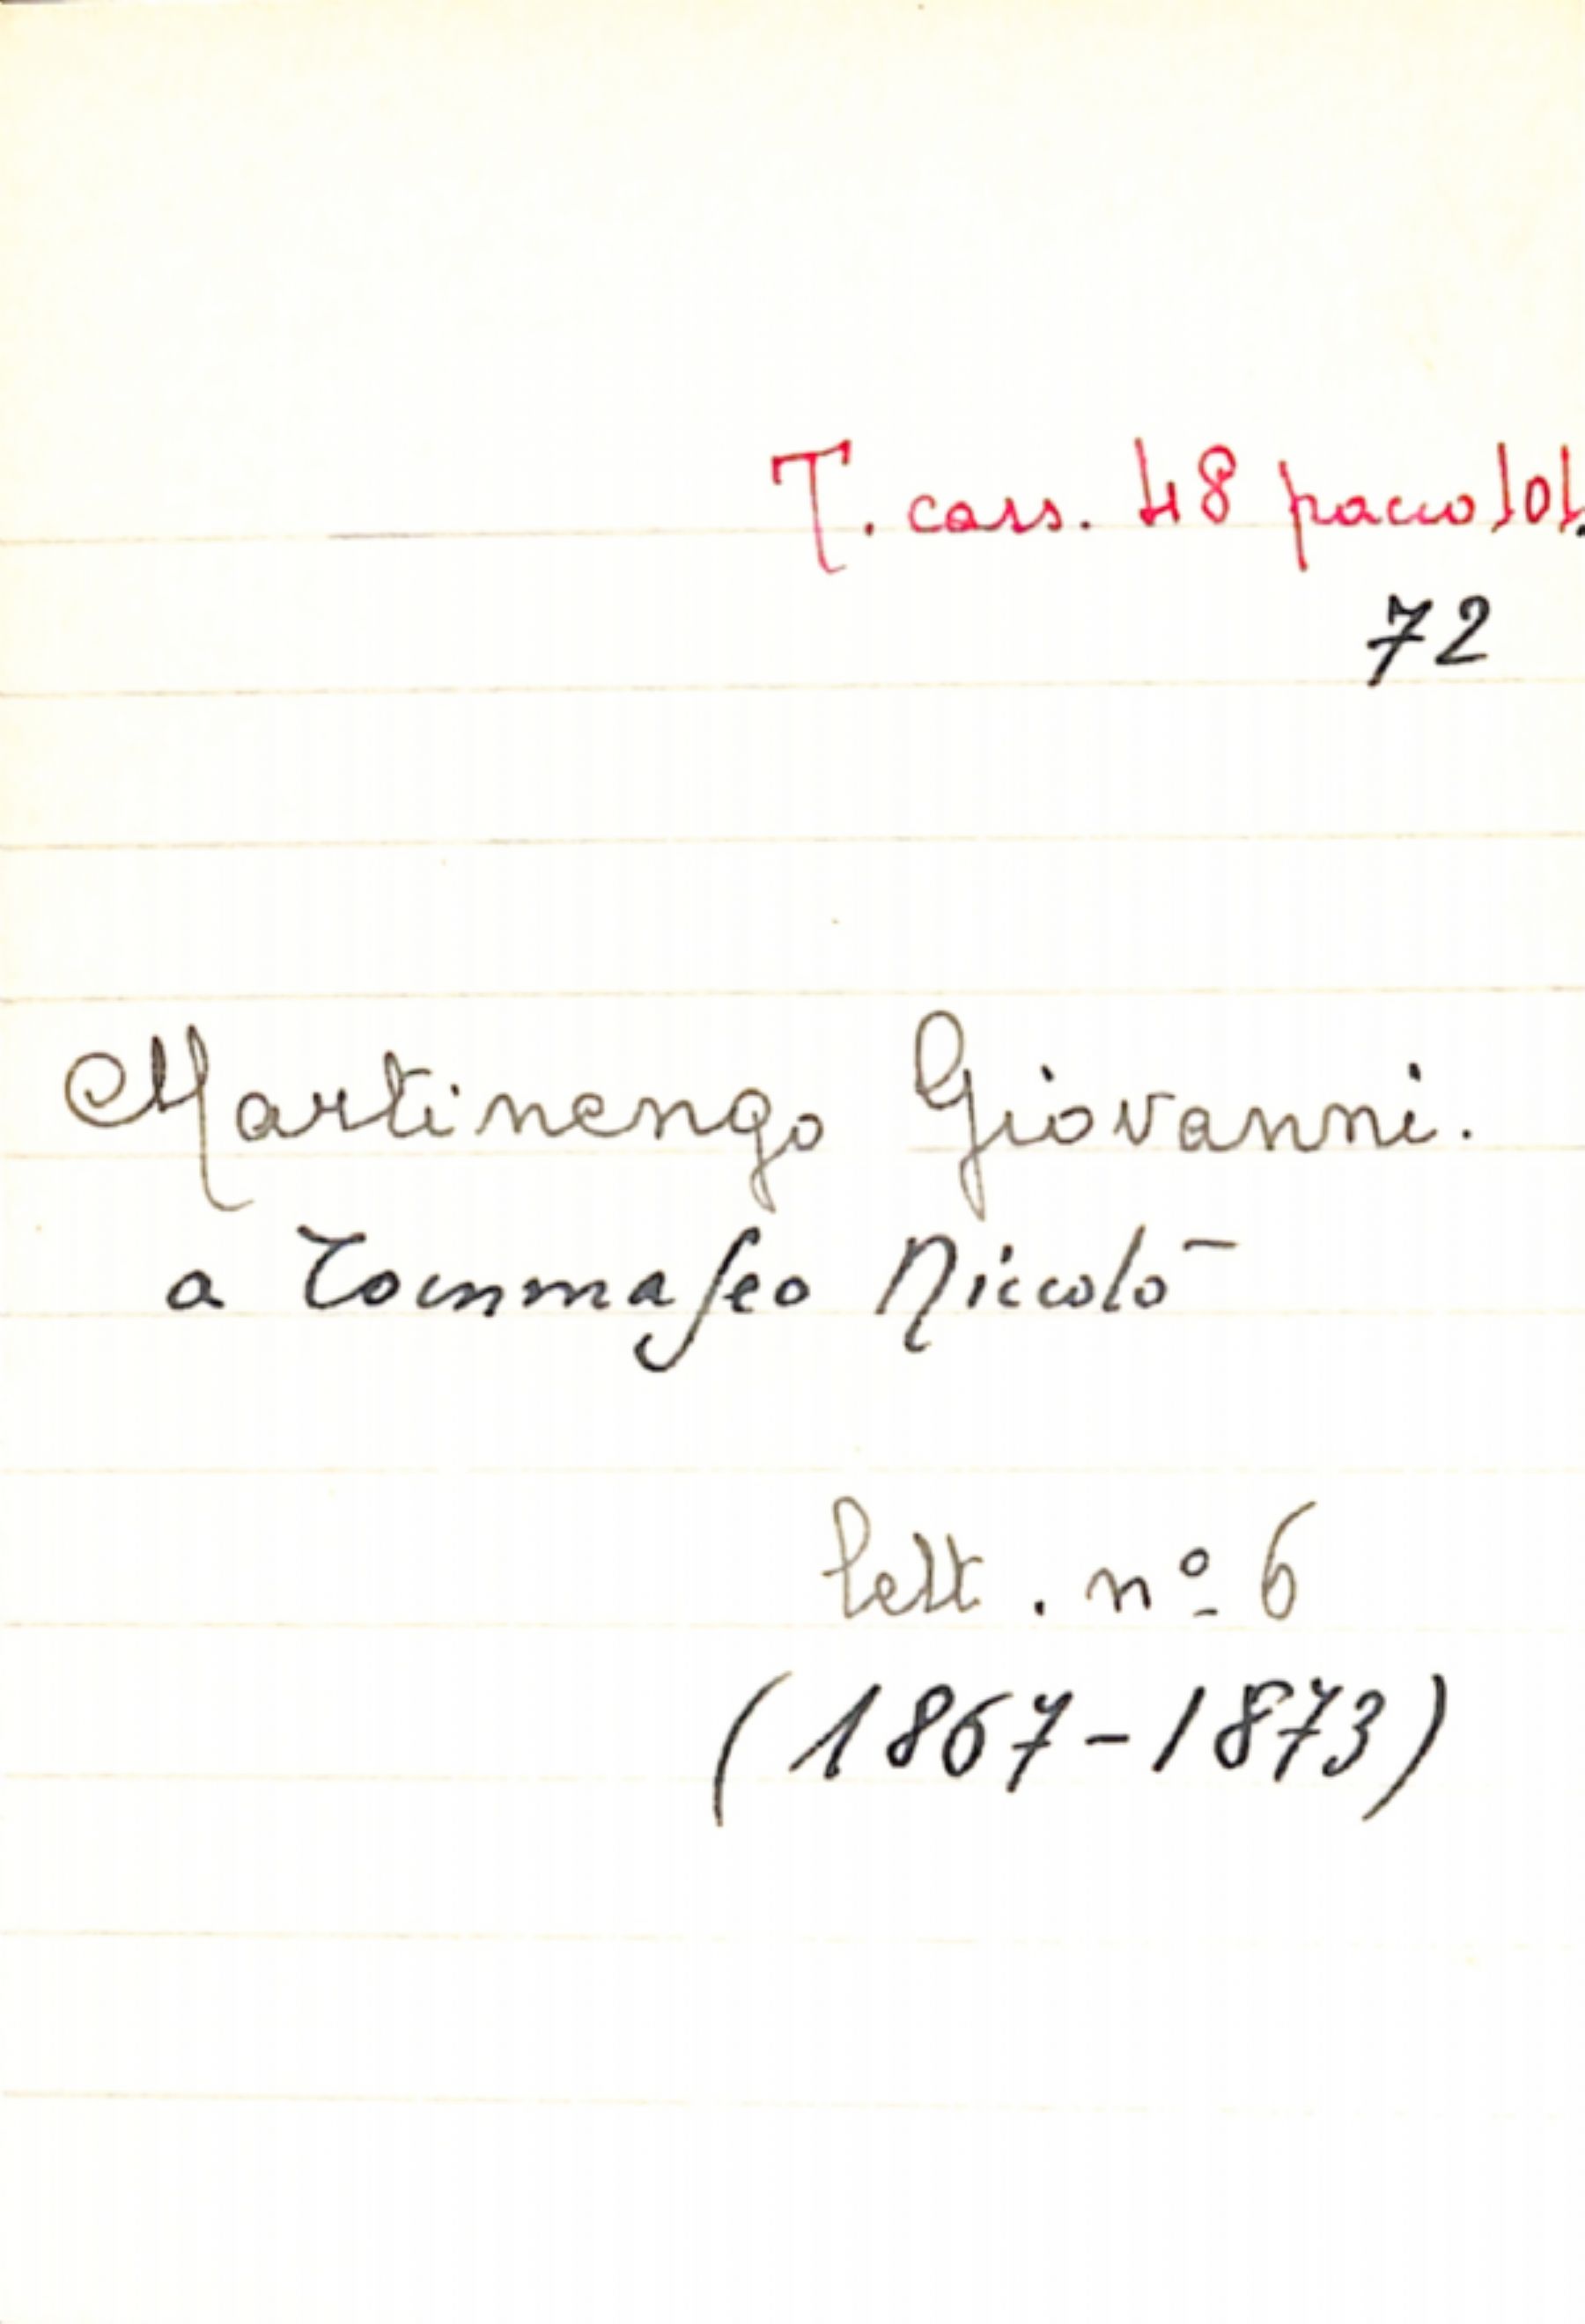 T. cass. 48 pacco 101.
72
Martinengo Giovanni.
a Tommaseo Niccolò
lett. nº 6
(1867-1873)